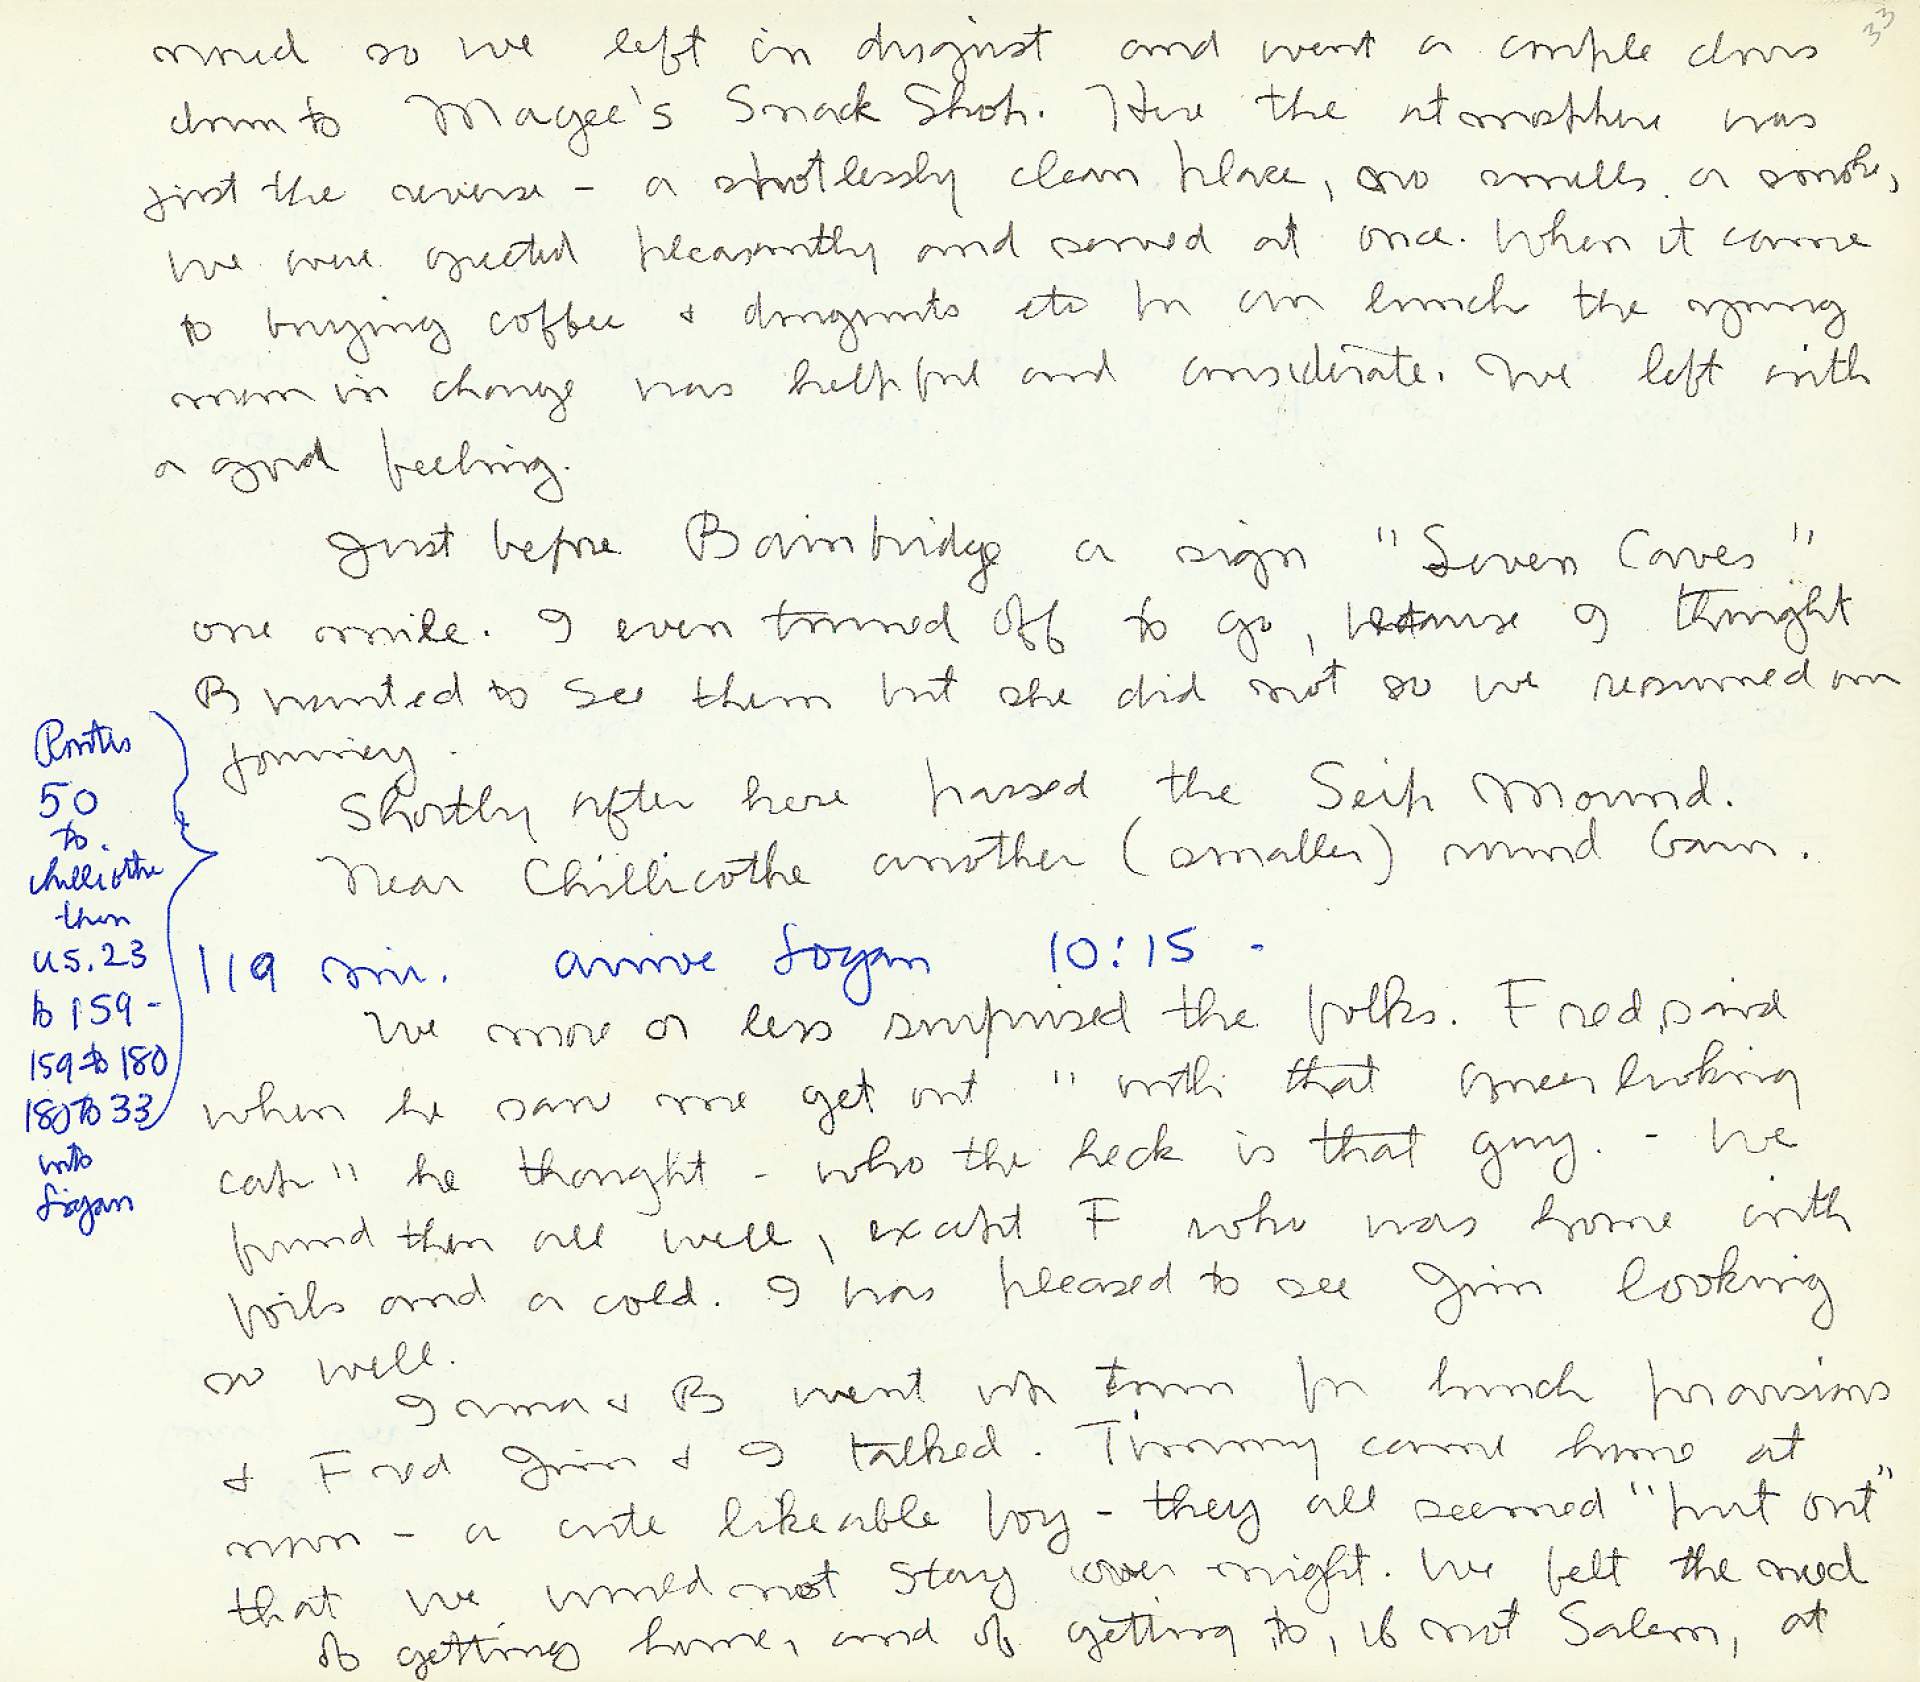 33
so we left in disgust and went a couple doors
down to Magee's Snack Shop. Here the atmosphere was
just the reverse - a spotlessly clean place, no smells or smoke,
we were greeted pleasantly and served at once. When it came
to buying coffee & doughnuts etc for our lunch the young
man in charge was helpful and considerate. We left with
a good feeling.
Just before Bainbridge a sign "Seven Caves"
one mile. I even turned off to go, because I thought
B wanted to see them but she did not so we resumed our
journey.
Shortly after here passed the Seip Mound.
Near Chillicothe another (smaller) mound
Routes
50
to
Chillicothe
then
US. 23
to 159 -
159 to 180
180 to 33
into
Logan
119 mi. arrive Logan 10:15 -
We more or less surprised the folks. Fred, said
when he saw me get out "with that queer looking
cap" he thought - who the heck is that guy. - We
found them all well, except F who was home with
boils and a cold. I was pleased to see Jim looking
so well.
Irma & B went up town for lunch provisions
& Fred Jim & I talked. Timmy came home at
noon - a cute likeable boy - they all seemed "put out"
that we would not stay over night. We felt the need
of getting home, and of getting to, if not Salem, at